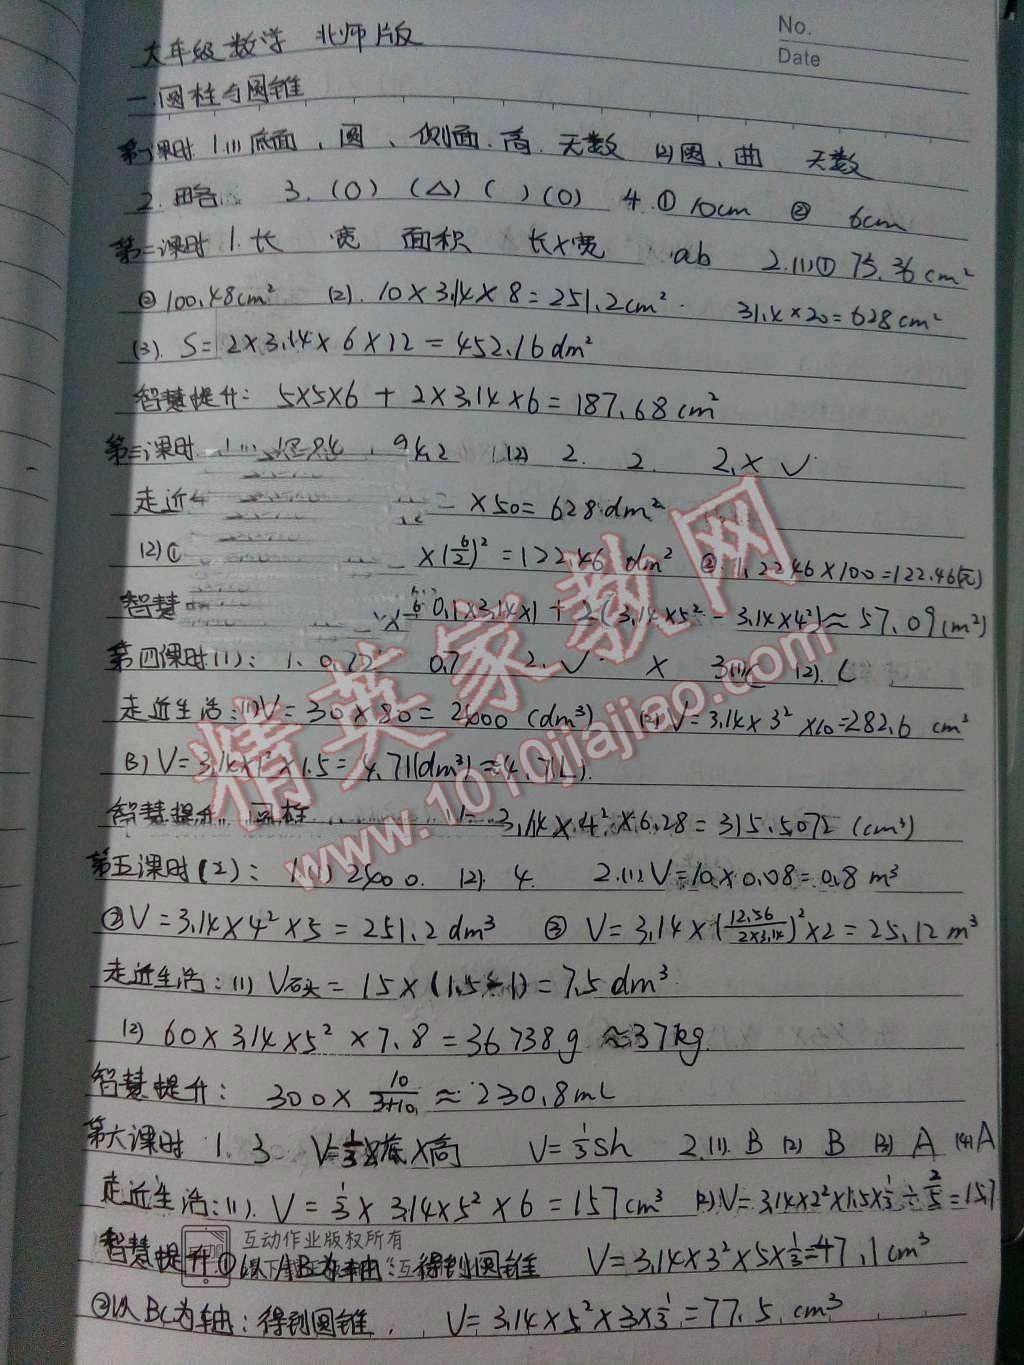 No.
Date
六年级数学 北师版
一.圆柱与圆锥
第一课时 1.(1)底面、圆、侧面.高.无数 (2)圆、曲 无数
2.略. 3.(O) (△) ( ) (O) 4.① 10cm ② 6cm
第二课时 1.长 宽 面积 长×宽 ab 2.(1)① 75.36cm²
②100.48cm² (2).10×3.14×8=251.2cm². 31.4×20=628cm²
(3). S=2×3.14×6×12=452.16dm²
智慧提升: 5×5×6+2×3.14×6=187.68cm²
第三课时 (2) 2. 2. 2.× √
走近 ×50=628dm²
(2)① ×(6/2)²=122.46dm² ②1.2246×100=122.46(元)
智慧 0.1×3.14×1+2(3.14×5²-3.14×4²)≈57.09(m²)
第四课时(1): 1. 0.72 0.7 2.√ × 3(1) (2). L
走近生活:(1)V=30×80=2400(dm³) (2)V=3.14×3²×10=282.6 cm³
(3)V=3.14×1²×1.5=4.71(dm³)≈4.7(L).
智慧提升 圆柱 V=3.14×4²×6.28=315.5072(cm³)
第五课时(2): 1(1)2400. (2). 4. 2.(1)V=10×0.08=0.8m³
②V=3.14×4²×5=251.2dm³ ③ V=3.14×(12.56/2×3.14)²×2=25.12m³
走近生活:(1)V石头=15×(1.5-1)=7.5dm³
(2)60×3.14×5²×7.8=36738g≈37kg.
智慧提升: 300×10/3+10≈230.8mL
第六课时 1.3 V=1/3×底×高 V=1/3Sh 2.(1).B (2) B (3) A (4)A
走近生活:(1).V=1/3×3.14×5²×6=157cm³ (2)V=3.14×2²×1.5×1/3÷2/5=15.7
智慧提升①以AB为轴:得到圆锥 V=3.14×3²×5×1/3=47.1cm³
互动作业版权所有
②以BC为轴:得到圆锥. V=3.14×5²×3×1/3=77.5.cm³
精英家教网
www.1010jiajiao.com